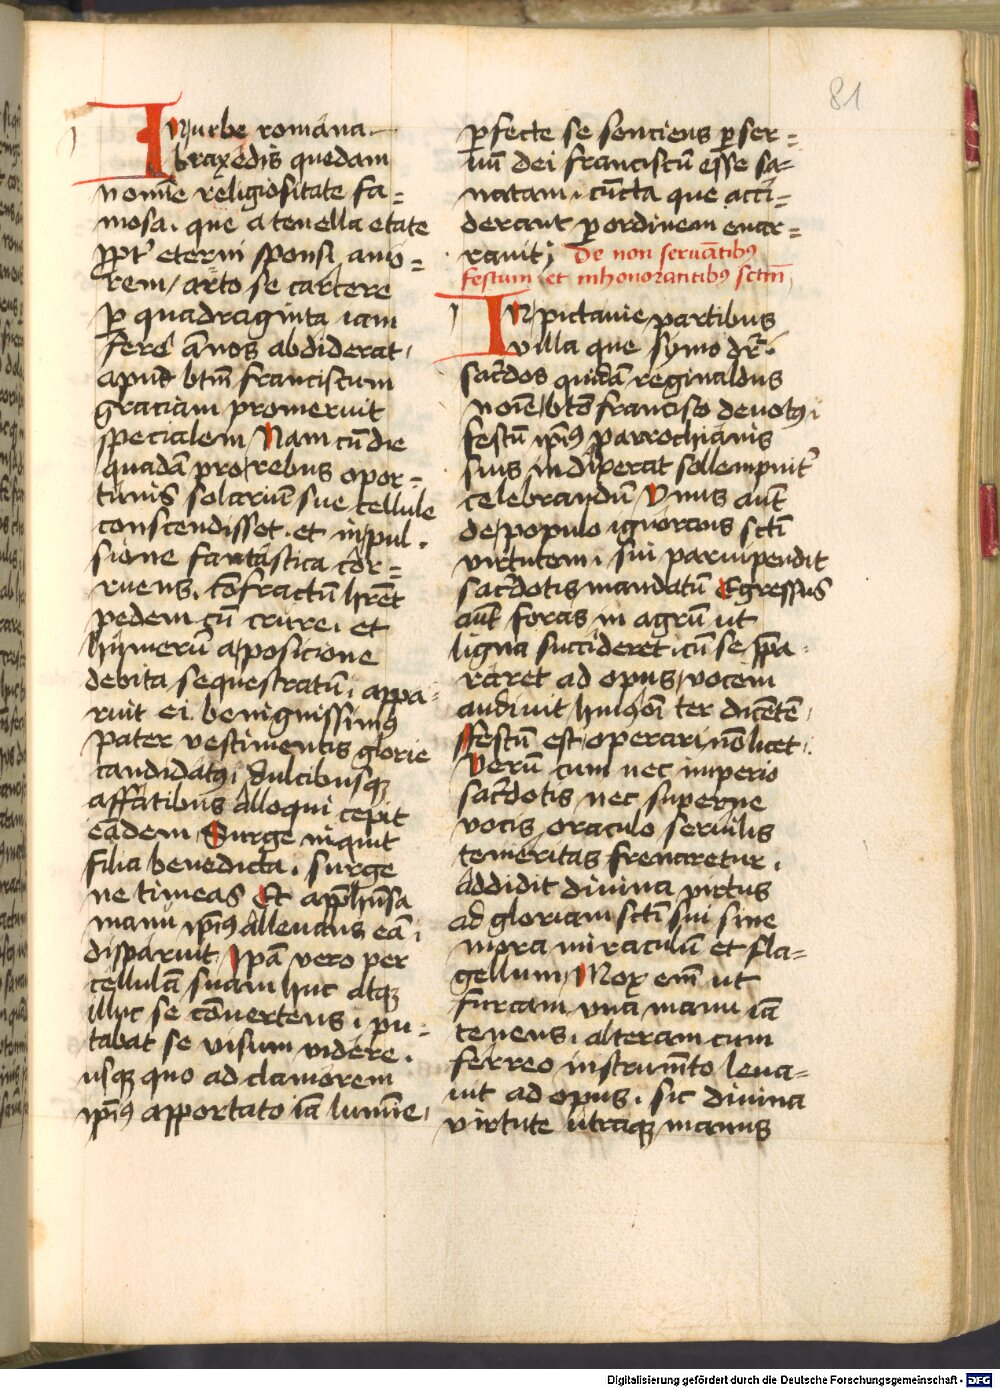 81
In urbe romana
braxedis quedam
nomīe religiositate fa=
mosa. que a tenella etate
ꝓpt̄ eterni sponsi amo=
rem / arto se carcere
ꝑ quadraginta iam
fere ānos abdiderat,
apud btm̄ franciscum
graciam promeruit
specialem Nam cū die
quadā pro rebus opor=
tunis solariū sue cellule
conscendisset. et inpul.
sione fantastica cor=
ruens. cōfractū hrēt
pedem cū crure. et
humerū a posicione
debita sequestratū. appa=
ruit ei benignissimꝰ
pater vestimentis glorie
candidatꝰ. dulcibusqꝫ
affatibus alloqui cepit
eādem Surge inquit
filia benedicta. surge
ne timeas Et app̄hēsa
manu ip̄iꝰ alleuans eā.
disparuit Ip̄a vero per
cellulā suam huc atqꝫ
illuc se cōuertens. pu=
tabat se visum videre.
usqꝫ quo ad clamorem
ip̄iꝰ apportato iā lumīe.
ꝑfecte se senciens ꝑ ser=
uū dei franciscū esse sa=
natam. cūcta que acci=
derant ꝑ ordinem enar=
rauit; De non seruātibꝰ
festum et inhonorantibꝰ sctm̄
In pictauie partibus
villa que symo dr̄.
sac̄dos quidā reginaldus
noīe / btō francisco deuotꝰ.
festū ip̄iꝰ parrochianis
suis indixerat sollempnit̄
celebrandū Vnus aūt
de populo ignorans scti
virtutem. sui paruipendit
sac̄dotis mandatū Egressus
aūt foras in agrū ut
ligna succideret. cū se p̄pa=
raret ad opus / vocem
audiuit huiꝰōi ter dicētē.
Festū est operari nō licet.
Verū cum nec imperio
sac̄dotis nec superne
vocis oraculo seruilis
temeritas frenaretur.
Addidit diuina virtus
ad gloriam scti sui sine
mora miraculū et fla=
gellum Mox em̄ ut
furcam vna manu iā
tenens. alteram cum
ferreo instrumēto leua=
uit ad opus. sic diuina
virtute utraqꝫ manus
Digitalisierung gefördert durch die Deutsche Forschungsgemeinschaft - DFG